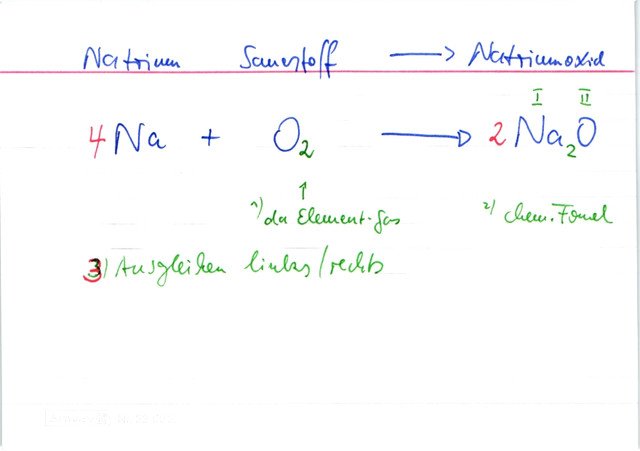 Natrium Sauerstoff → Natriumoxid
I II
4 Na + O₂ → 2 Na₂O
↑
1) da Element-Gas 2) chem. Formel
3) Ausgleichen links/rechts